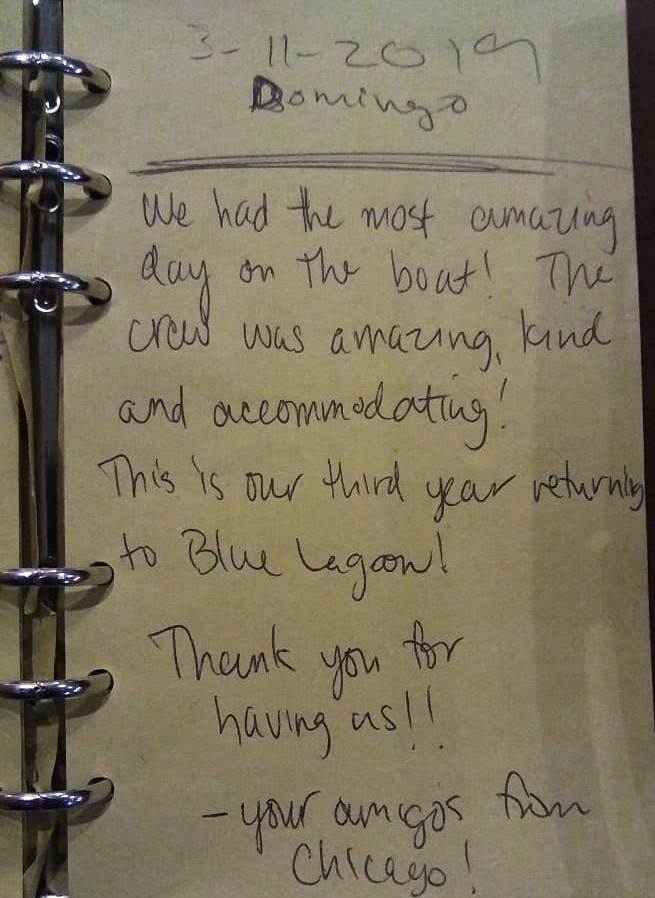 3-11-2019
Domingo
We had the most amazing
day on the boat! The
crew was amazing, kind
and accommodating!
This is our third year returning
to Blue Lagoon!
Thank you for
having us!!
- your amigos from
Chicago!